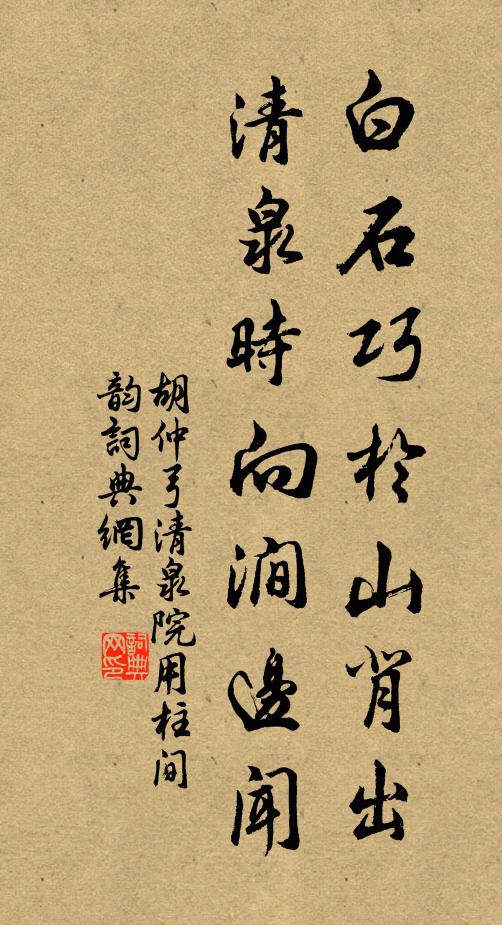 白石巧於山背出
清泉時向澗邊聞
胡仲弓清泉院用柱間
韵詞典網集
詞典网印